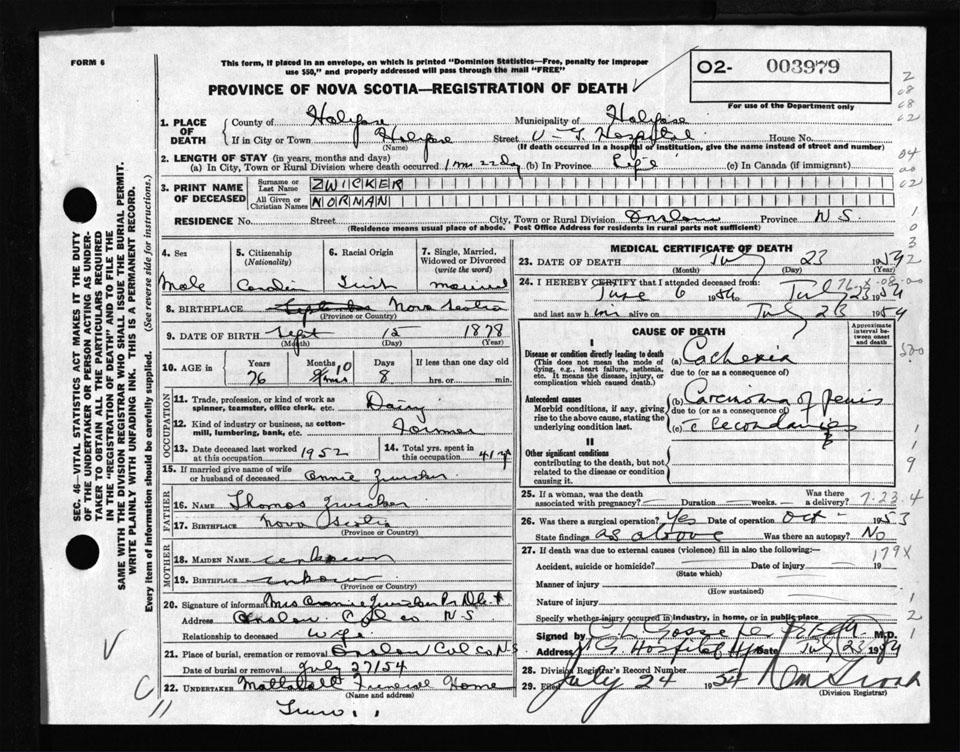 FORM 6
This form, if placed in an envelope, on which is printed "Dominion Statistics—Free, penalty for improper
use $50," and properly addressed will pass through the mail "FREE"
PROVINCE OF NOVA SCOTIA—REGISTRATION OF DEATH
O2- 003979
For use of the Department only
1. PLACE OF DEATH County of Halifax Municipality of Halifax
If in City or Town Halifax Street V-G. Hospital House No.
(Name) (If death occurred in a hospital or institution, give the name instead of street and number)
2. LENGTH OF STAY (in years, months and days)
(a) In City, Town or Rural Division where death occurred 1 mo 22 Day (b) In Province Life (c) In Canada (if immigrant)
3. PRINT NAME OF DECEASED Surname or Last Name ZWICKER
All Given or Christian Names NORMAN
RESIDENCE No. Street City, Town or Rural Division Onslow Province N S.
(Residence means usual place of abode. Post Office Address for residents in rural parts not sufficient)
4. Sex 5. Citizenship (Nationality) 6. Racial Origin 7. Single, Married, Widowed or Divorced (write the word)
Male married
8. BIRTHPLACE Nova Scotia
(Province or Country)
9. DATE OF BIRTH Sept 15 1878
(Month) (Day) (Year)
10. AGE in Years Months Days If less than one day old
76 10 8 hrs. or min.
OCCUPATION
11. Trade, profession, or kind of work as spinner, teamster, office clerk, etc. Dairy
12. Kind of industry or business, as cotton-mill, lumbering, bank, etc. Farmer
13. Date deceased last worked at this occupation 1952 14. Total yrs. spent in this occupation 41 y
15. If married give name of wife or husband of deceased Annie Zwicker
FATHER
16. NAME Thomas Zwicker
17. BIRTHPLACE Nova Scotia
(Province or Country)
MOTHER
18. MAIDEN NAME unknown
19. BIRTHPLACE unknown
(Province or Country)
20. Signature of informant Mrs Annie Zwicker
Address Onslow Col co N S
Relationship to deceased Wife
21. Place of burial, cremation or removal Onslow Col Co NS
Date of burial or removal July 27/54
22. UNDERTAKER Mattatall Funeral Home
(Name and address)
Truro
MEDICAL CERTIFICATE OF DEATH
23. DATE OF DEATH July 23 1954
(Month) (Day) (Year)
24. I HEREBY CERTIFY that I attended deceased from:
June 6 1954 July 23 1954
and last saw him alive on July 23 1954
CAUSE OF DEATH
Approximate interval between onset and death
I
Disease or condition directly leading to death (a) Cachexia
(This does not mean the mode of dying, e.g., heart failure, asthenia, etc. It means the disease, injury, or complication which caused death.)
due to (or as a consequence of)
Antecedent causes (b) Carcinoma of penis
Morbid conditions, if any, giving rise to the above cause, stating the underlying condition last.
due to (or as a consequence of)
(c) c Secondaries
II
Other significant conditions
contributing to the death, but not related to the disease or condition causing it.
25. If a woman, was the death associated with pregnancy? Duration weeks. Was there a delivery?
7.23.4
26. Was there a surgical operation? Yes Date of operation Oct - 1953
State findings as above Was there an autopsy? No
27. If death was due to external causes (violence) fill in also the following:—
179X
Accident, suicide or homicide? Date of injury 19
(State which)
Manner of injury
(How sustained)
Nature of injury
Specify whether injury occurred in industry, in home, or in public place
Signed by M.D.
Address V. G. Hospital Date July 23 1954
28. Division Registrar's Record Number
29. Filed July 24 1954
(Division Registrar)
SEC. 46—VITAL STATISTICS ACT MAKES IT THE DUTY
OF THE UNDERTAKER OR PERSON ACTING AS UNDER-
TAKER TO OBTAIN ALL THE PARTICULARS REQUIRED
IN THE "REGISTRATION OF DEATH" AND TO FILE THE
SAME WITH THE DIVISION REGISTRAR WHO SHALL ISSUE THE BURIAL PERMIT.
WRITE PLAINLY WITH UNFADING INK. THIS IS A PERMANENT RECORD.
Every item of information should be carefully supplied. (See reverse side for instructions.)